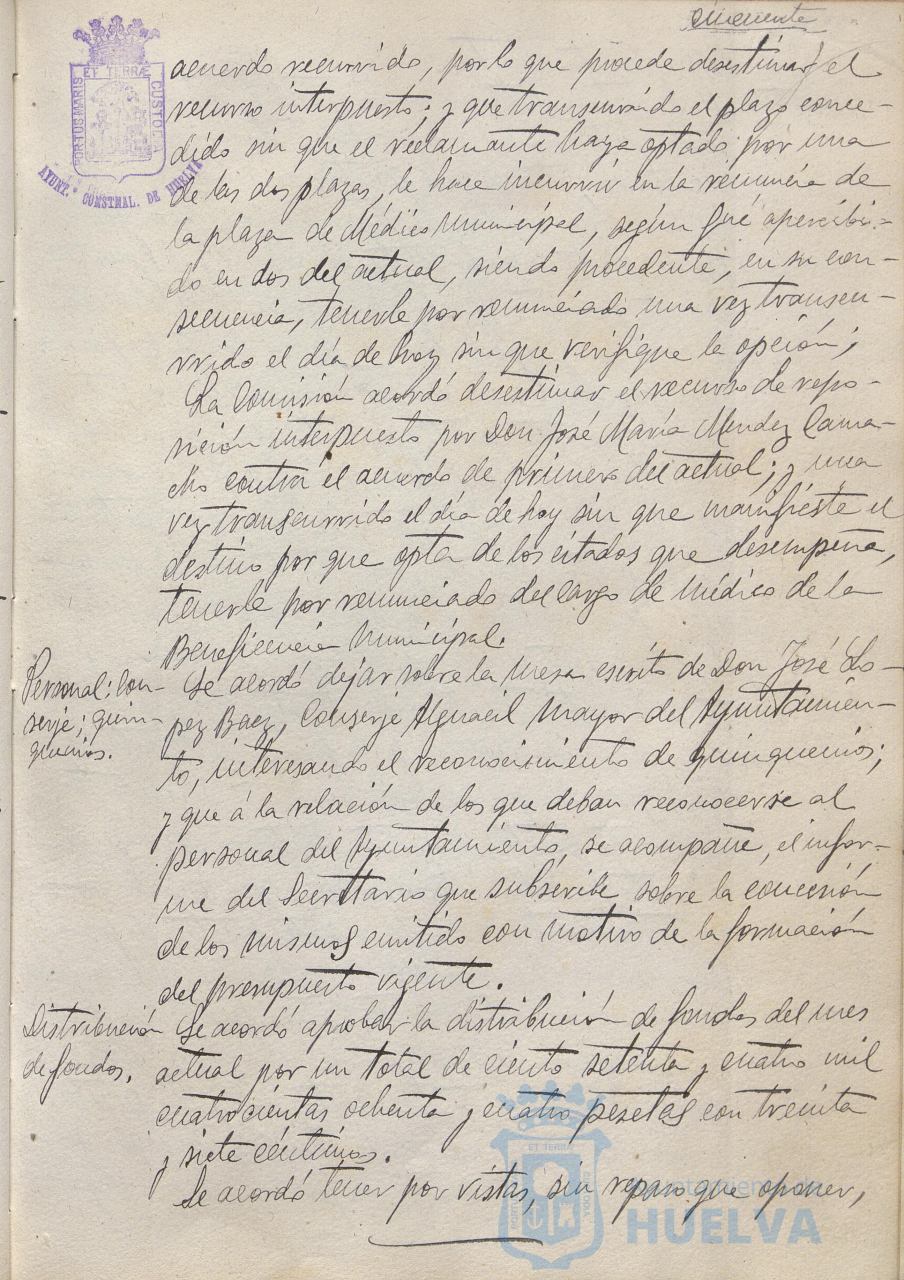 cincuenta
PORTUS MARIS ET TERRÆ CUSTODIA
AYUNT. CONSTNAL. DE HUELVA
acuerdo recurrido, por lo que procede desestimar el
recurso interpuesto; y que transcurrido el plazo conce-
dido sin que el reclamante haya optado por una
de las dos plazas, le hace incurrir en la renuncia de
la plaza de Médico Municipal, según fué apercibi-
do en dos del actual, siendo procedente, en su con-
secuencia, tenerle por renunciado una vez transcu-
rrido el día de hoy sin que verifique la opción;
La Comisión acordó desestimar el recurso de repo-
sición interpuesto por Don José María Mendez Cama-
cho contra el acuerdo de primero del actual; y una
vez transcurrido el día de hoy sin que manifieste el
destino por que opta de los citados que desempeña,
tenerle por renunciado del cargo de Médico de la
Beneficencia Municipal.
Personal: Con-
serje; quin-
quenios.
Se acordó dejar sobre la mesa escrito de Don José Lo-
pez Baez, Conserje Alguacil mayor del Ayuntamien-
to, interesando el reconocimiento de quinquenios;
y que á la relación de los que deban reconocerse al
personal del Ayuntamiento, se acompañe, el infor-
me del Secretario que subscribe sobre la concesión
de los mismos emitido con motivo de la formación
del presupuesto vigente.
Distribución
de fondos.
Se acordó aprobar la distribución de fondos del mes
actual por un total de ciento setenta y cuatro mil
cuatrocientas ochenta y cuatro pesetas con treinta
y siete céntimos.
Se acordó tener por vistas, sin reparo que oponer,
Ayuntamiento de
HUELVA